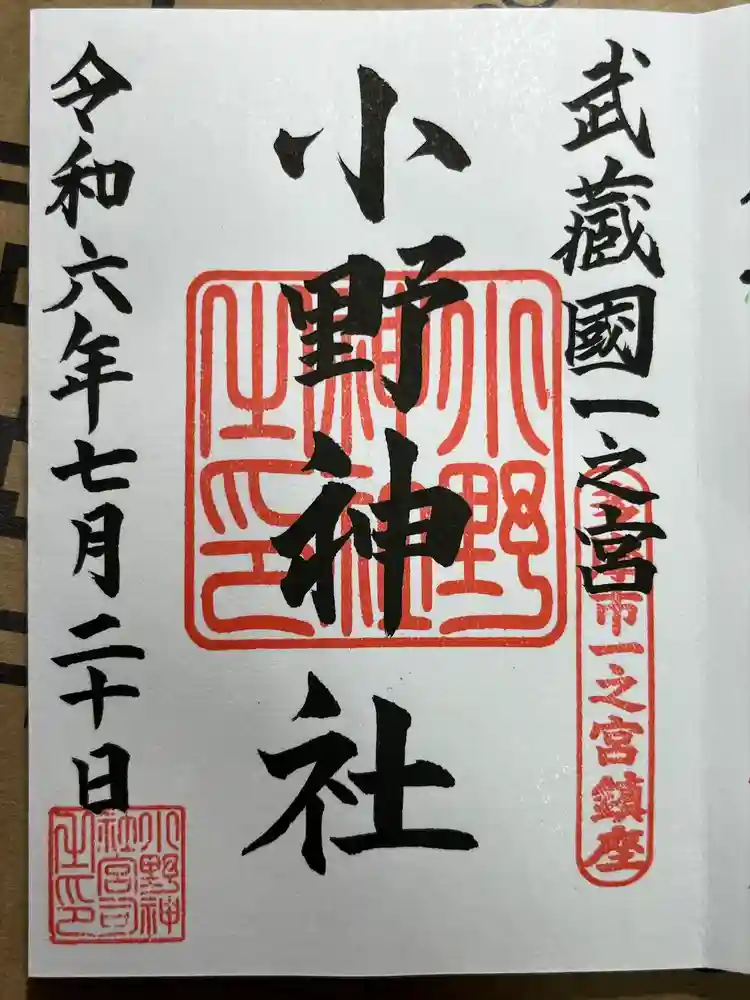 武蔵國一之宮
市一之宮鎮座
小野神社
小野神社之印
令和六年七月二十日
小野神社宮司之印